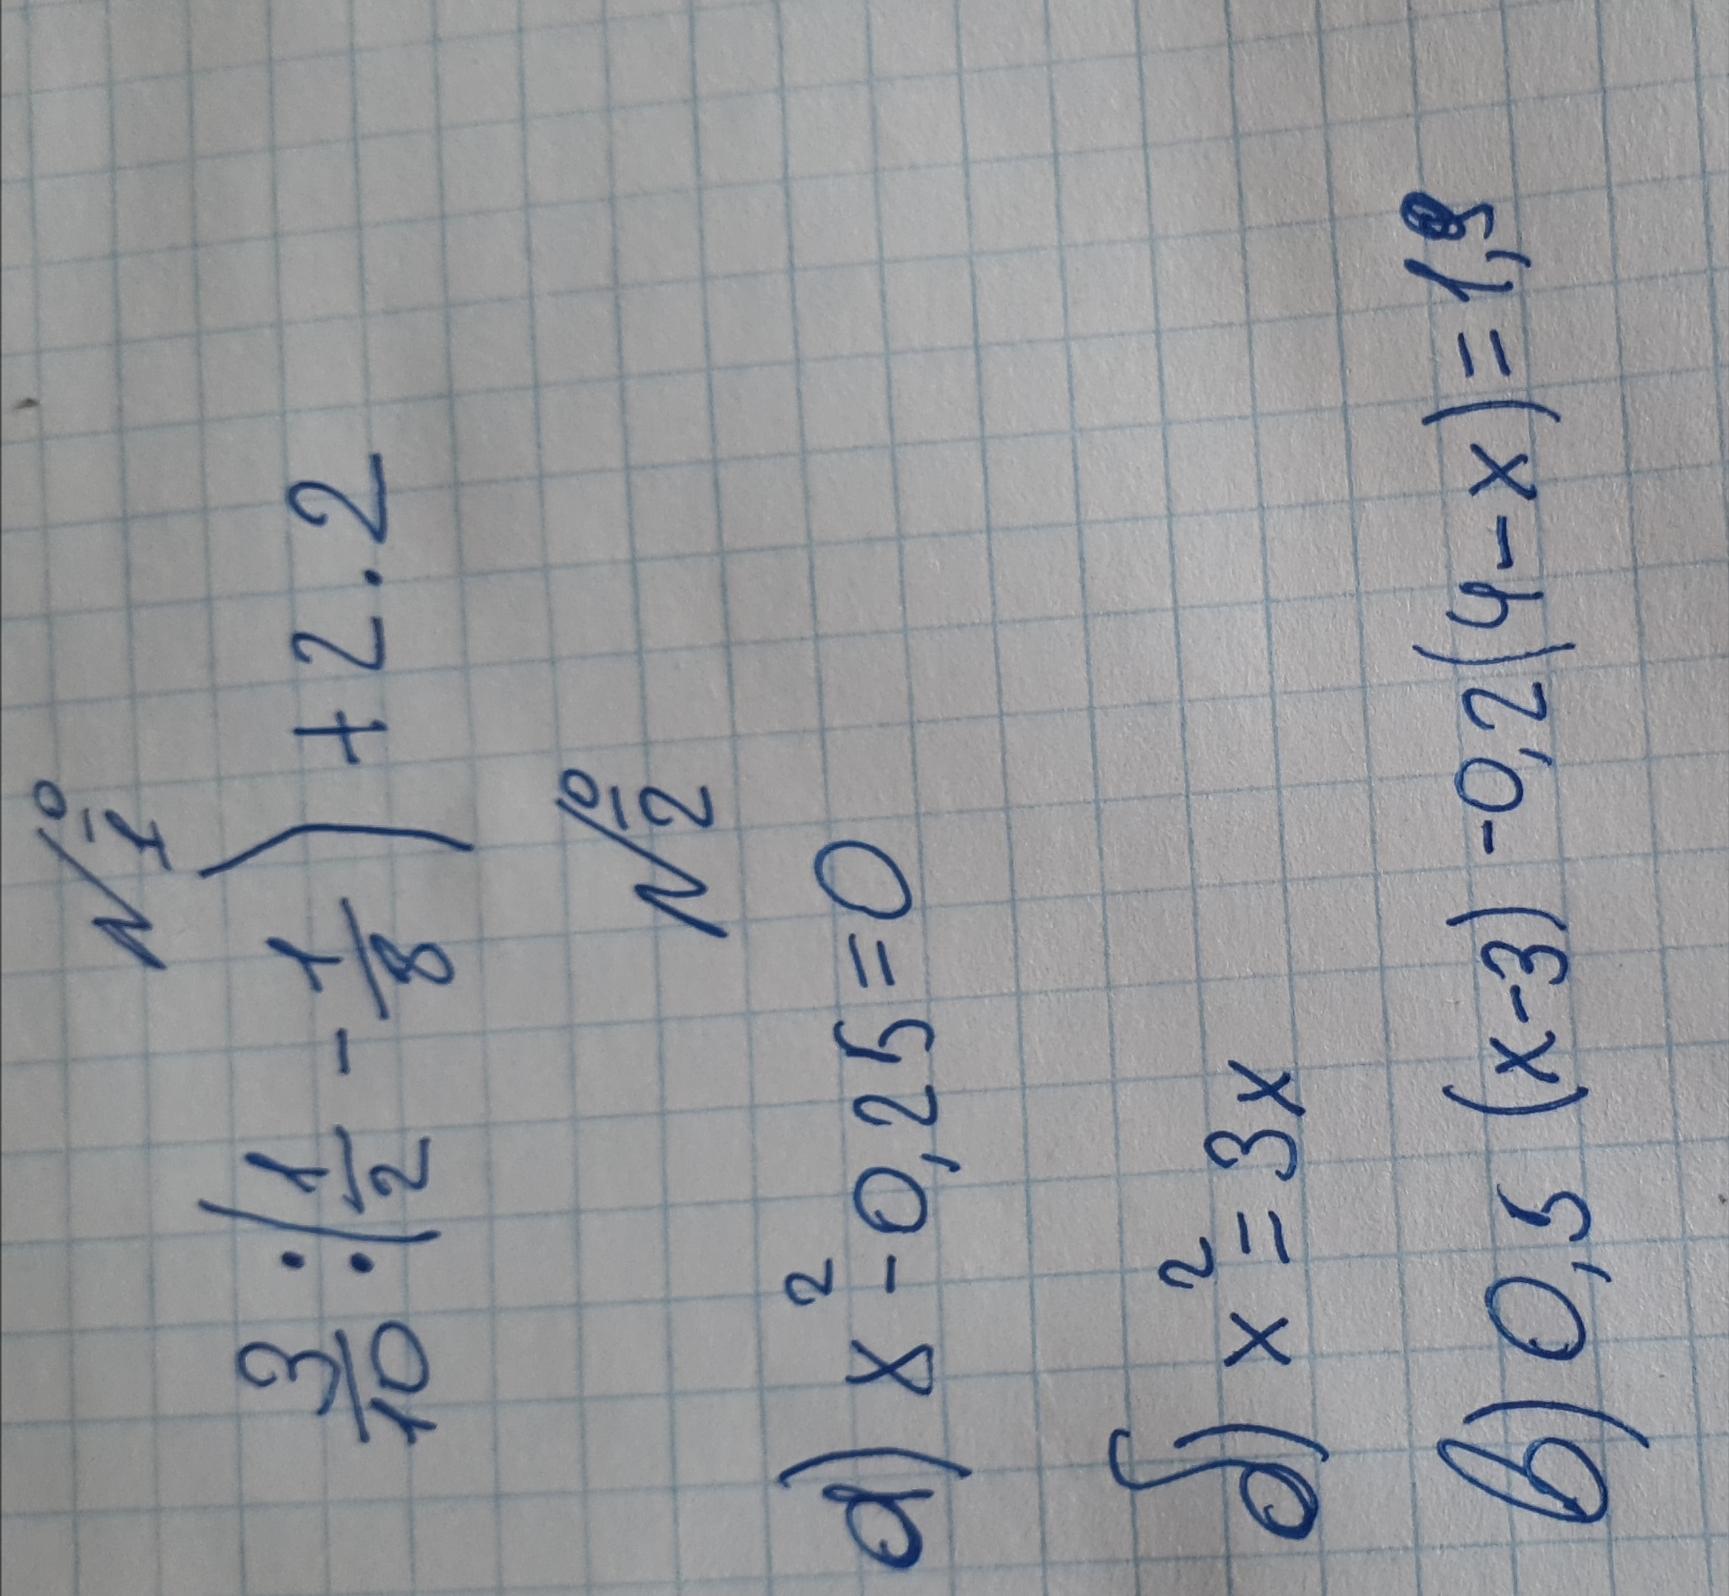 №1
3/10 : (1/2 - 1/8) + 2 · 2
№2
а) x² - 0,25 = 0
б) x² = 3x
в) 0,5 (x-3) - 0,2(4-x) = 1,9